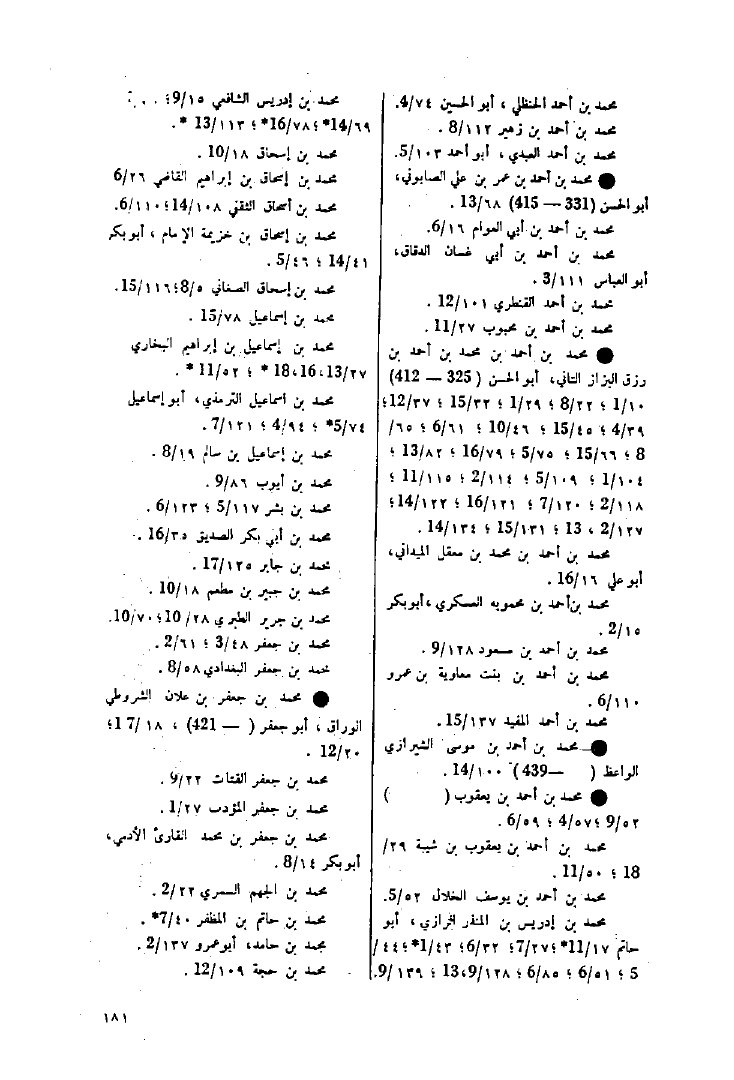 محمد بن أحمد الحنظلي ، أبو الحسين ٧٤/4.
محمد بن أحمد بن زهير ١١٢/8 .
محمد بن أحمد العبدي ، أبو أحمد ١٠٣/5.
● محمد بن أحمد بن عمر بن علي الصابوني،
أبو الحسن (331 — 415) ٦٨/13 .
محمد بن أحمد بن أبي العوام ١٦/6.
محمد بن أحمد بن أبي غسان الدقاق،
أبو العباس ١١١/3 .
محمد بن أحمد القنطري ١٠١/12 .
محمد بن أحمد بن محبوب ٢٧/11 .
● محمد بن أحمد بن محمد بن أحمد بن
رزق البزاز التاني، أبو الحسن ( 325 — 412)
١٠/1 ؛ ٢٢/8 ؛ ٢٩/1 ؛ ٣٢/15 ؛ ٣٧/12؛
٣٩/4 ؛ ٤٥/15 ؛ ٤٦/10 ؛ ٦١/6 ؛ ٦٥/
8 ؛ ٦٦/15 ؛ ٧٥/5 ؛ ٧٩/16 ؛ ٨٢/13 ؛
١٠٤/1 ؛ ١٠٩/5 ؛ ١١٤/2 ؛ ١١٥/11 ؛
١١٨/2 ؛ ١٢٠/7 ؛ ١٢١/16 ؛ ١٢٢/14؛
١٢٧/2 ، 13 ؛ ١٣١/15 ؛ ١٣٤/14 .
محمد بن أحمد بن محمد بن معقل الميداني،
أبو علي ١٦/16 .
محمد بن أحمد بن محمويه العسكري ، أبو بكر
١٥/2 .
محمد بن أحمد بن مسعود ١٢٨/9 .
محمد بن أحمد بن بنت معاوية بن عمرو
١١٠/6 .
محمد بن أحمد المفيد ١٣٧/15 .
● محمد بن أحمد بن موسى الشيرازي
الواعظ ( —439) ١٠٠/14 .
● محمد بن أحمد بن يعقوب ( )
٥٢/9 ؛ ٥٧/4 ؛ ٥٩/6 .
محمد بن أحمد بن يعقوب بن شيبة ٢٩/
18 ؛ ٥٠/11 .
محمد بن أحمد بن يوسف الخلال ٥٢/5.
محمد بن إدريس بن المنذر الرازي ، أبو
حاتم ١٧/11* ؛ ٢٧/7 ؛ ٣٢/6 ؛ ٤٣/1* ؛ ٤٤/
5 ؛ ٥١/6 ؛ ٨٥/6 ؛ ١٢٨/9، 13 ؛ ١٣٩/9.
محمد بن إدريس الشافعي ١٥/9؛
٦٩/14* ؛ ٧٨/16* ؛ ١١٣/13 * .
محمد بن إسحاق ١٨/10 .
محمد بن إسحاق بن إبراهيم القاضي ٢٦/6
محمد بن أسحاق الثقفي ١٠٨/14 ؛ ١١٠/6.
محمد بن إسحاق بن خزيمة الإمام ، أبو بكر
٤١/14 ؛ ٤٦/5 .
محمد بن إسحاق الصغاني ٥/8؛ ١١٦/15.
محمد بن إسماعيل ٧٨/15 .
محمد بن إسماعيل بن إبراهيم البخاري
٢٧/13، 16، 18 * ؛ ٥٢/11 * .
محمد بن اسماعيل الترمذي ، أبو إسماعيل
٧٤/5* ؛ ٩٤/4 ؛ ١٢١/7.
محمد بن إسماعيل بن سالم ١٩/8 .
محمد بن أيوب ٨٦/9 .
محمد بن بشر ١١٧/5 ؛ ١٢٣/6 .
محمد بن أبي بكر الصديق ٣٥/16 .
محمد بن جابر ١٢٥/17 .
محمد بن جبير بن مطعم ١٨/10 .
محمد بن جرير الطبري ٢٨/10؛ ٧٠/10.
محمد بن جعفر ٤٨/3 ؛ ٦١/2 .
محمد بن جعفر البغدادي ٥٨/8 .
● محمد بن جعفر بن علان الشروطي
الوراق ، أبو جعفر ( — 421) ، ١٨/17؛
٢٠/12 .
محمد بن جعفر القتات ٢٢/9 .
محمد بن جعفر المؤدب ٢٧/1 .
محمد بن جعفر بن محمد القارئ الأدمي،
أبو بكر ١٤/8 .
محمد بن الجهم السمري ٢٢/2 .
محمد بن حاتم بن المظفر ٤٠/7* .
محمد بن حامد، أبو عمرو ١٣٧/2 .
محمد بن حجة ١٠٩/12 .
١٨١